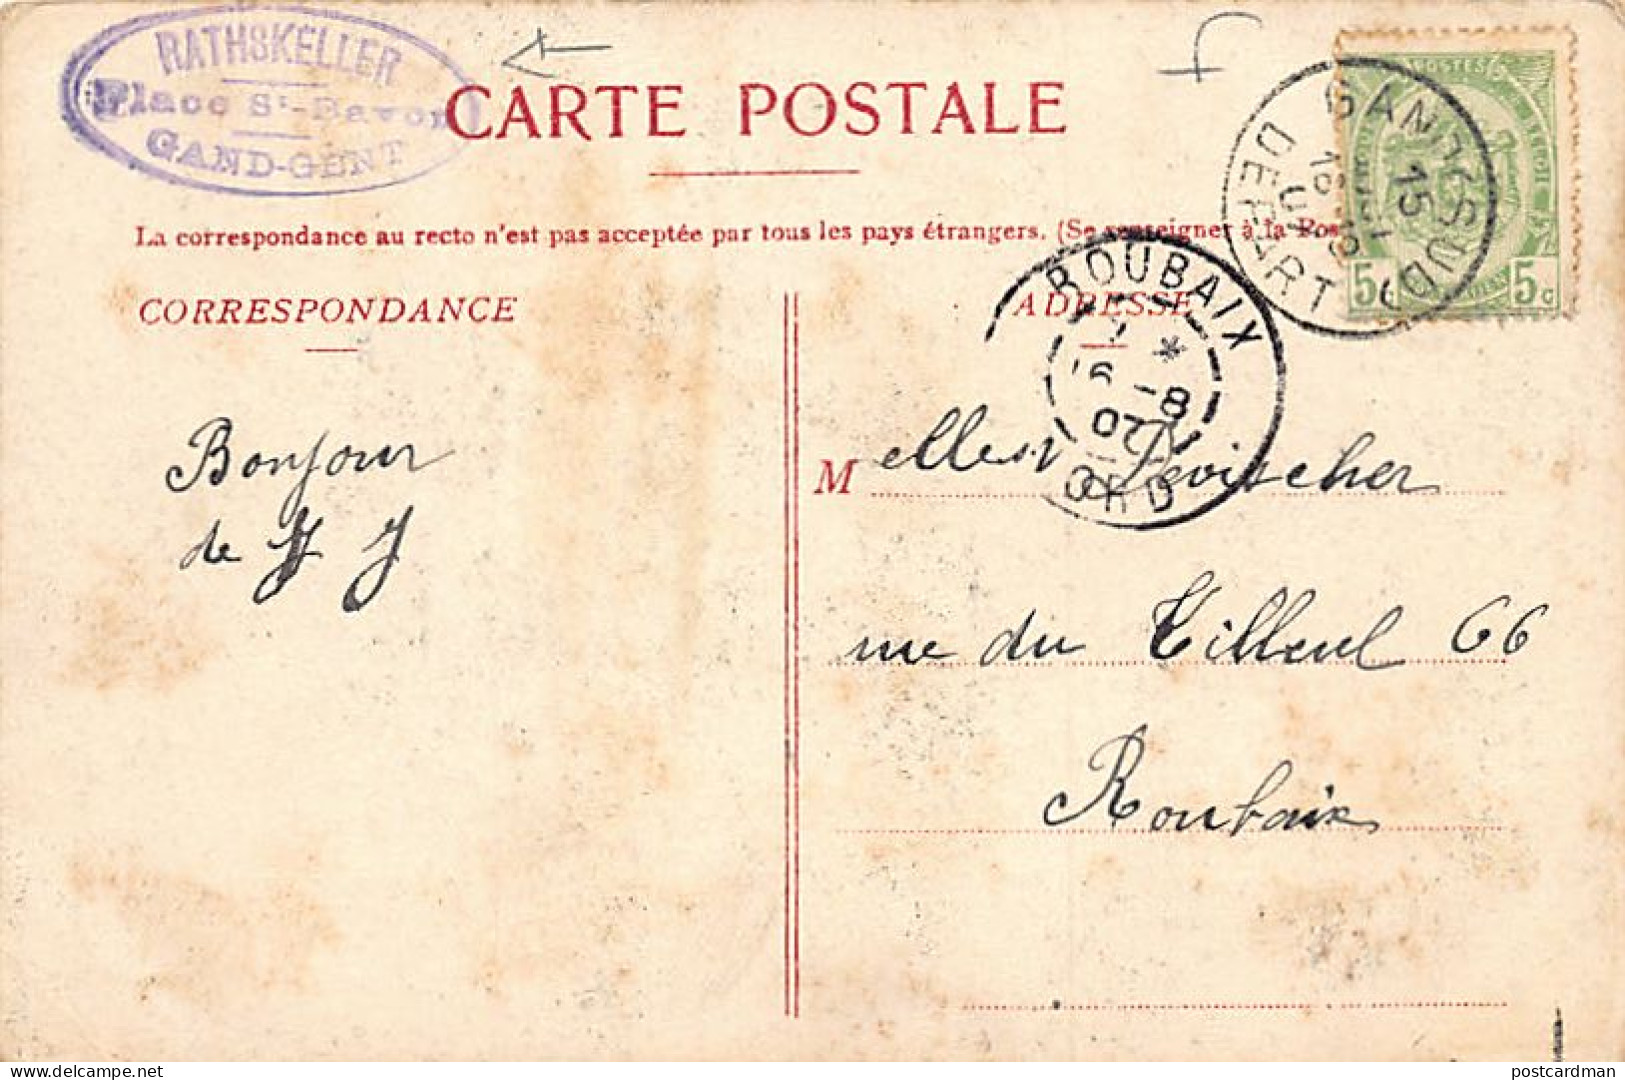 RATHSKELLER
Place St-Bavon
GAND-GENT
CARTE POSTALE
La correspondance au recto n'est pas acceptée par tous les pays étrangers. (Se renseigner à la Pos
CORRESPONDANCE
ADRESSE
POSTES
5 5 c
GAND (SUD)
15
DEPART
ROUBAIX
*
16 -8
07
ORD
Bonjour
de
M elles Devisscher
rue du Tilleul 66
Roubaix
postcardman